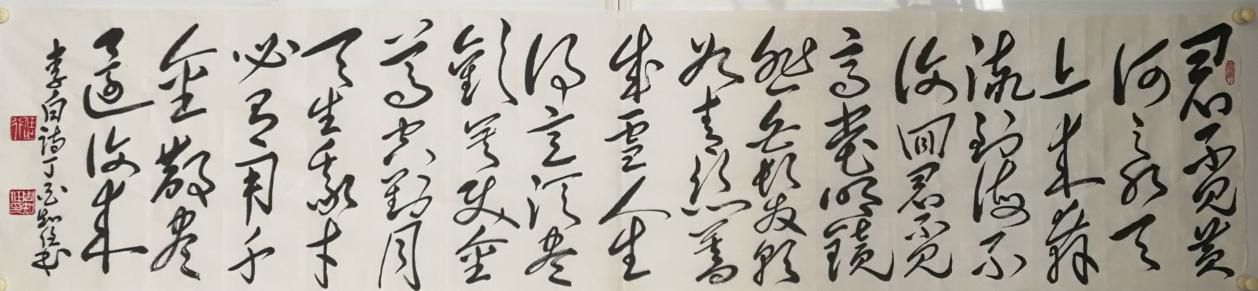 君不见黄
河之水天
上来奔
流到海不
復回君不見
高堂明鏡
悲白髮朝
如青絲暮
成雪人生
得意須盡
歡莫使金
尊空對月
天生我才
必有用千
金散盡
還復来
李白詩丁酉